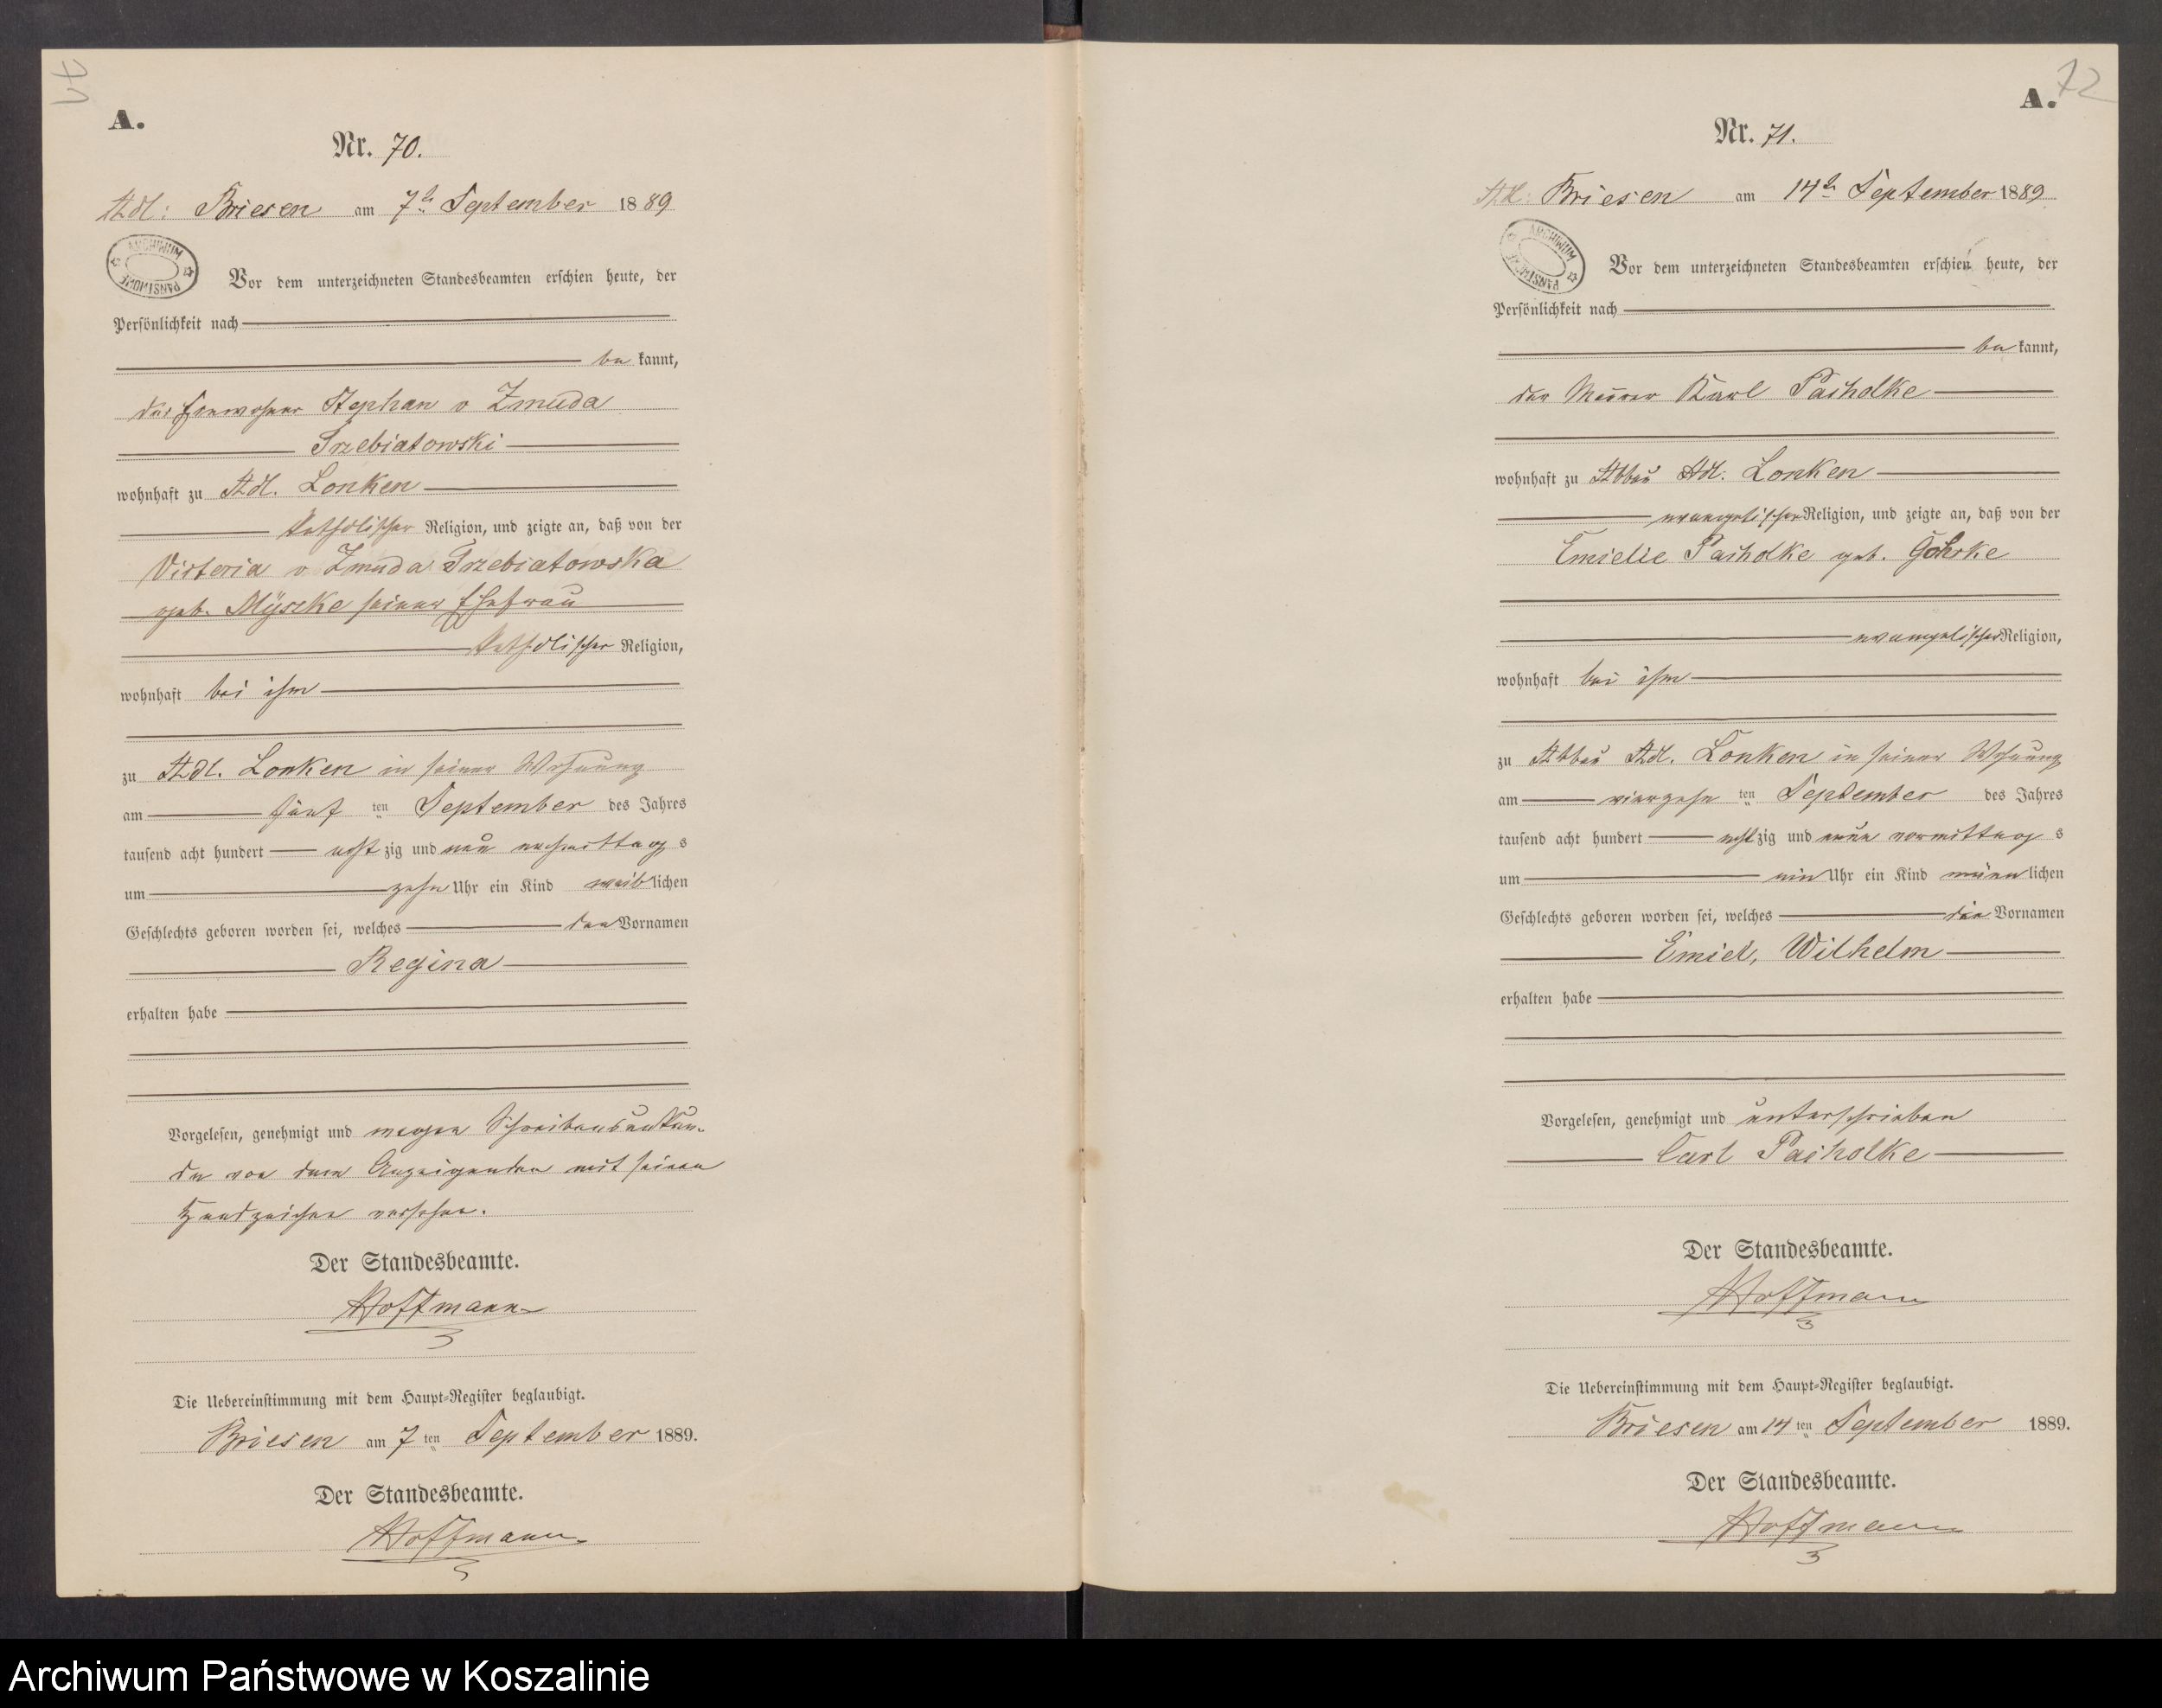 A.
Nr. 70.
Adl: Briesen am 7ten September 1889
ARCHIWUM PAŃSTWOWE
Vor dem unterzeichneten Standesbeamten erschien heute, der
Persönlichkeit nach
be kannt,
der Einwohner Stephan v Zmuda
Trzebiatowski
wohnhaft zu Adl. Lonken
katholischer Religion, und zeigte an, daß von der
Victoria v. Zmuda Trzebiatowska
geb. Myszke seiner Ehefrau
katholischer Religion,
wohnhaft bei ihm
zu Adl. Lonken in seiner Wohnung
am fünf ten September des Jahres
tausend acht hundert acht zig und neun nachmittag s
um zehn Uhr ein Kind weib lichen
Geschlechts geboren worden sei, welches den Vornamen
Regina
erhalten habe
Vorgelesen, genehmigt und wegen Schreibensunkun-
de von dem Anzeigenden mit seinen
Handzeichen versehen.
Der Standesbeamte.
Hoffmann
Die Uebereinstimmung mit dem Haupt-Register beglaubigt.
Briesen am 7 ten September 1889.
Der Standesbeamte.
Hoffmann
72
A.
Nr. 71.
Adl: Briesen am 14ten September 1889
ARCHIWUM PAŃSTWOWE
Vor dem unterzeichneten Standesbeamten erschien heute, der
Persönlichkeit nach
be kannt,
der Maurer Karl Pacholke
wohnhaft zu Abbau Adl: Lonken
evangelischer Religion, und zeigte an, daß von der
Emielie Pacholke geb. Gohrke
evangelischer Religion,
wohnhaft bei ihm
zu Abbau Adl. Lonken in seiner Wohnung
am vierzehn ten September des Jahres
tausend acht hundert acht zig und neun vormittag s
um ein Uhr ein Kind männ lichen
Geschlechts geboren worden sei, welches die Vornamen
Emiel, Wilhelm
erhalten habe
Vorgelesen, genehmigt und unterschrieben
Carl Pacholke
Der Standesbeamte.
Hoffmann
Die Uebereinstimmung mit dem Haupt-Register beglaubigt.
Briesen am 14 ten September 1889.
Der Standesbeamte.
Hoffmann
Archiwum Państwowe w Koszalinie